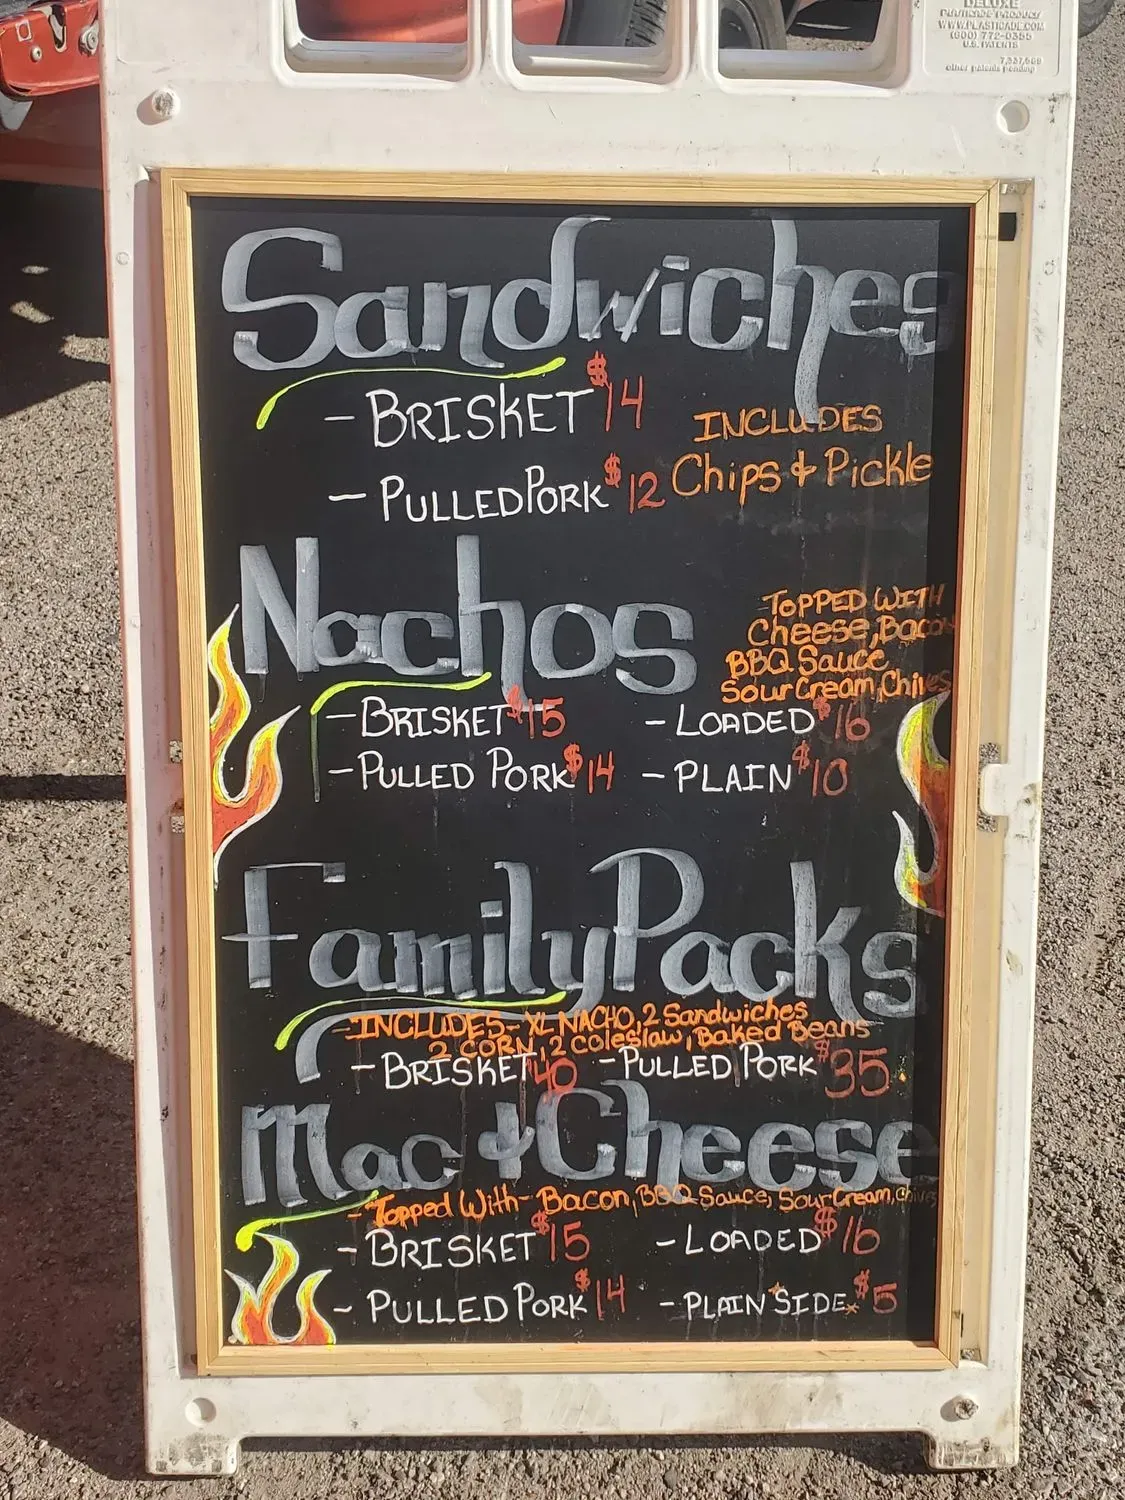 DELUXE
PLASTICADE PRODUCTS
WWW.PLASTICADE.COM
(800) 772-0355
U.S. PATENTS
7,337,569
other patents pending
Sandwiches
- BRISKET $14
INCLUDES
- PULLED PORK $12
Chips & Pickle
Nachos
TOPPED WITH
Cheese, Bacon
BBQ Sauce
Sour Cream, Chives
- BRISKET $15
- LOADED $16
- PULLED PORK $14
- PLAIN $10
Family Packs
- INCLUDES - XL NACHO, 2 Sandwiches
2 CORN, 2 Coleslaw, Baked Beans
- BRISKET $40
- PULLED PORK $35
Mac & Cheese
- Topped With - Bacon, BBQ Sauce, Sour Cream, chives
- BRISKET $15
- LOADED $16
- PULLED PORK $14
- PLAIN *SIDE* $5